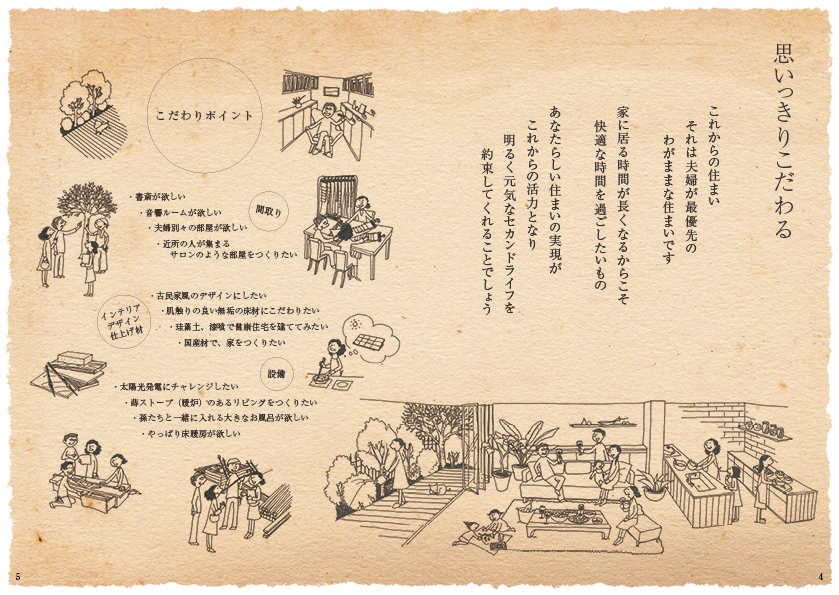 思いっきりこだわる
これからの住まい
それは夫婦が最優先の
わがままな住まいです
家に居る時間が長くなるからこそ
快適な時間を過ごしたいもの
あなたらしい住まいの実現が
これからの活力となり
明るく元気なセカンドライフを
約束してくれることでしょう
こだわりポイント
間取り
・書斎が欲しい
・音響ルームが欲しい
・夫婦別々の部屋が欲しい
・近所の人が集まる
サロンのような部屋をつくりたい
インテリア
デザイン
仕上げ材
・古民家風のデザインにしたい
・肌触りの良い無垢の床材にこだわりたい
・珪藻土、漆喰で健康住宅を建ててみたい
・国産材で、家をつくりたい
設備
・太陽光発電にチャレンジしたい
・蒔ストーブ（暖炉）のあるリビングをつくりたい
・孫たちと一緒に入れる大きなお風呂が欲しい
・やっぱり床暖房が欲しい
5
4